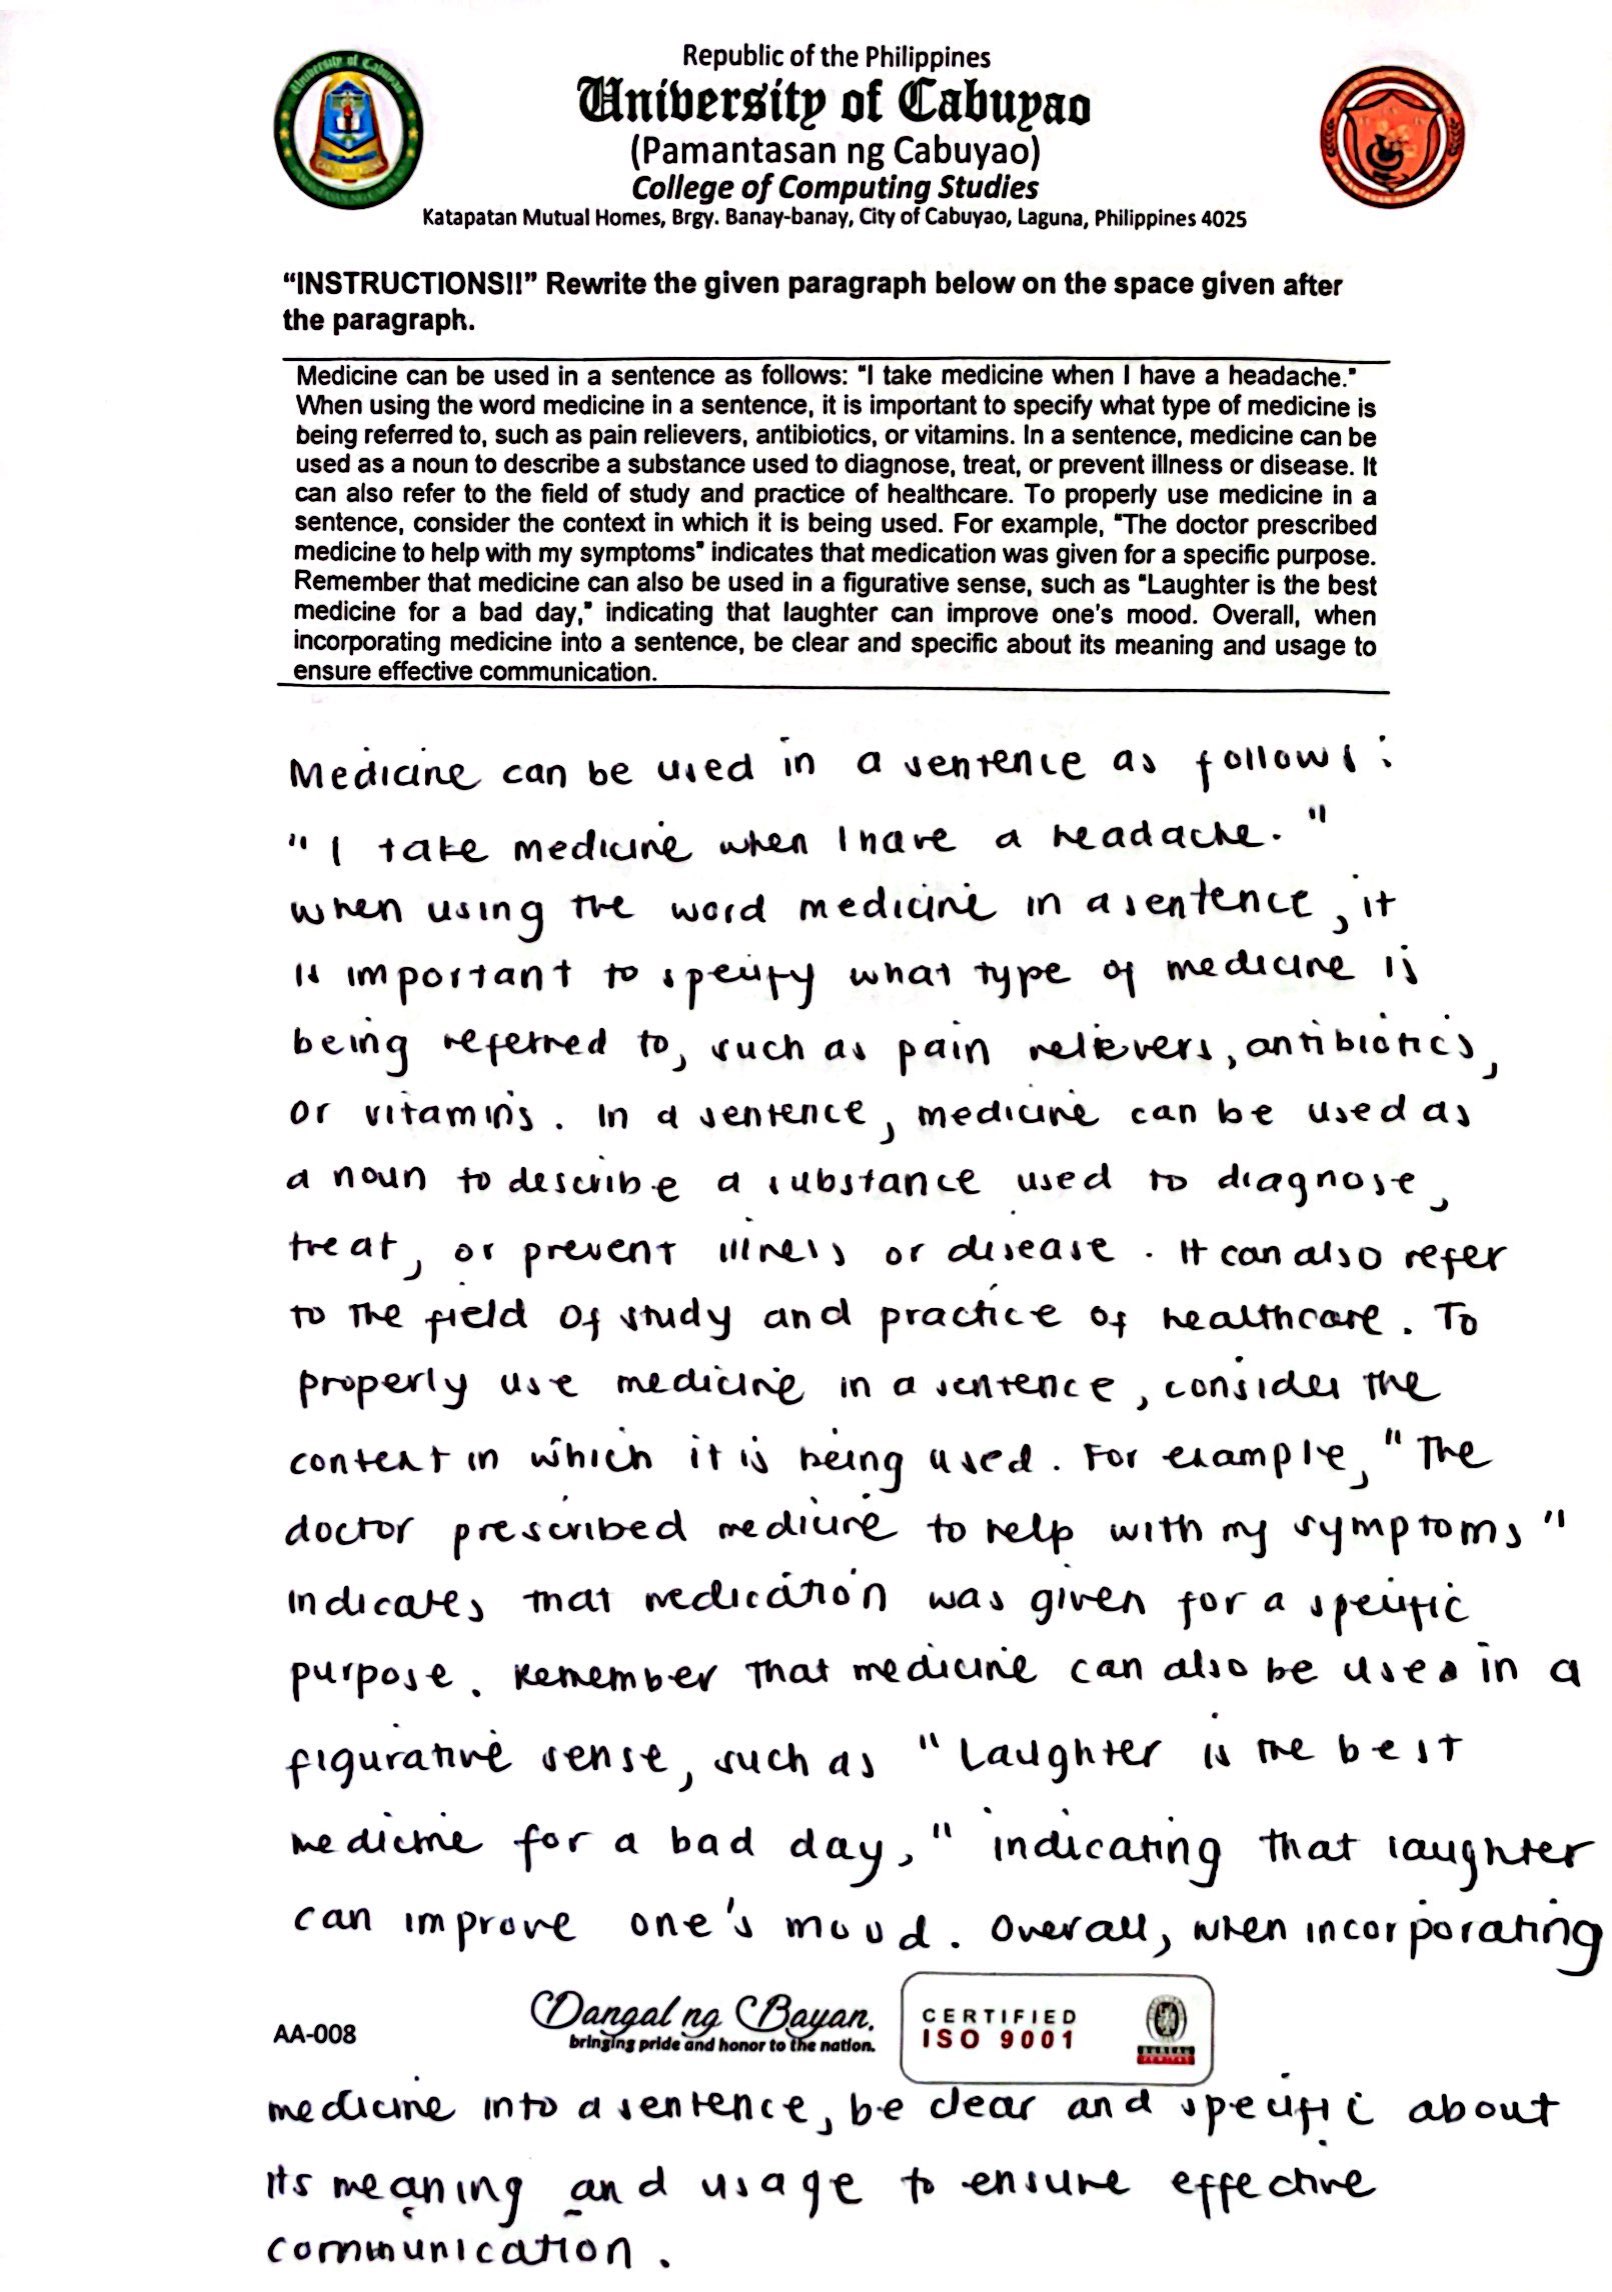 Republic of the Philippines
University of Cabuyao
(Pamantasan ng Cabuyao)
College of Computing Studies
Katapatan Mutual Homes, Brgy. Banay-banay, City of Cabuyao, Laguna, Philippines 4025
“INSTRUCTIONS!!” Rewrite the given paragraph below on the space given after
the paragraph.
Medicine can be used in a sentence as follows: "I take medicine when I have a headache."
When using the word medicine in a sentence, it is important to specify what type of medicine is
being referred to, such as pain relievers, antibiotics, or vitamins. In a sentence, medicine can be
used as a noun to describe a substance used to diagnose, treat, or prevent illness or disease. It
can also refer to the field of study and practice of healthcare. To properly use medicine in a
sentence, consider the context in which it is being used. For example, "The doctor prescribed
medicine to help with my symptoms" indicates that medication was given for a specific purpose.
Remember that medicine can also be used in a figurative sense, such as "Laughter is the best
medicine for a bad day," indicating that laughter can improve one's mood. Overall, when
incorporating medicine into a sentence, be clear and specific about its meaning and usage to
ensure effective communication.
Medicine can be used in a sentence as follows:
"I take medicine when I have a headache."
When using the word medicine in a sentence, it
is important to specify what type of medicine is
being referred to, such as pain relievers, antibiotics,
or vitamins. In a sentence, medicine can be used as
a noun to describe a substance used to diagnose,
treat, or prevent illness or disease. It can also refer
to the field of study and practice of healthcare. To
properly use medicine in a sentence, consider the
context in which it is being used. For example, "The
doctor prescribed medicine to help with my symptoms"
indicates that medication was given for a specific
purpose. Remember that medicine can also be used in a
figurative sense, such as "Laughter is the best
medicine for a bad day," indicating that laughter
can improve one's mood. Overall, when incorporating
AA-008
Dangal ng Bayan.
bringing pride and honor to the nation.
CERTIFIED
ISO 9001
BUREAU
VERITAS
medicine into a sentence, be clear and specific about
its meaning and usage to ensure effective
communication.